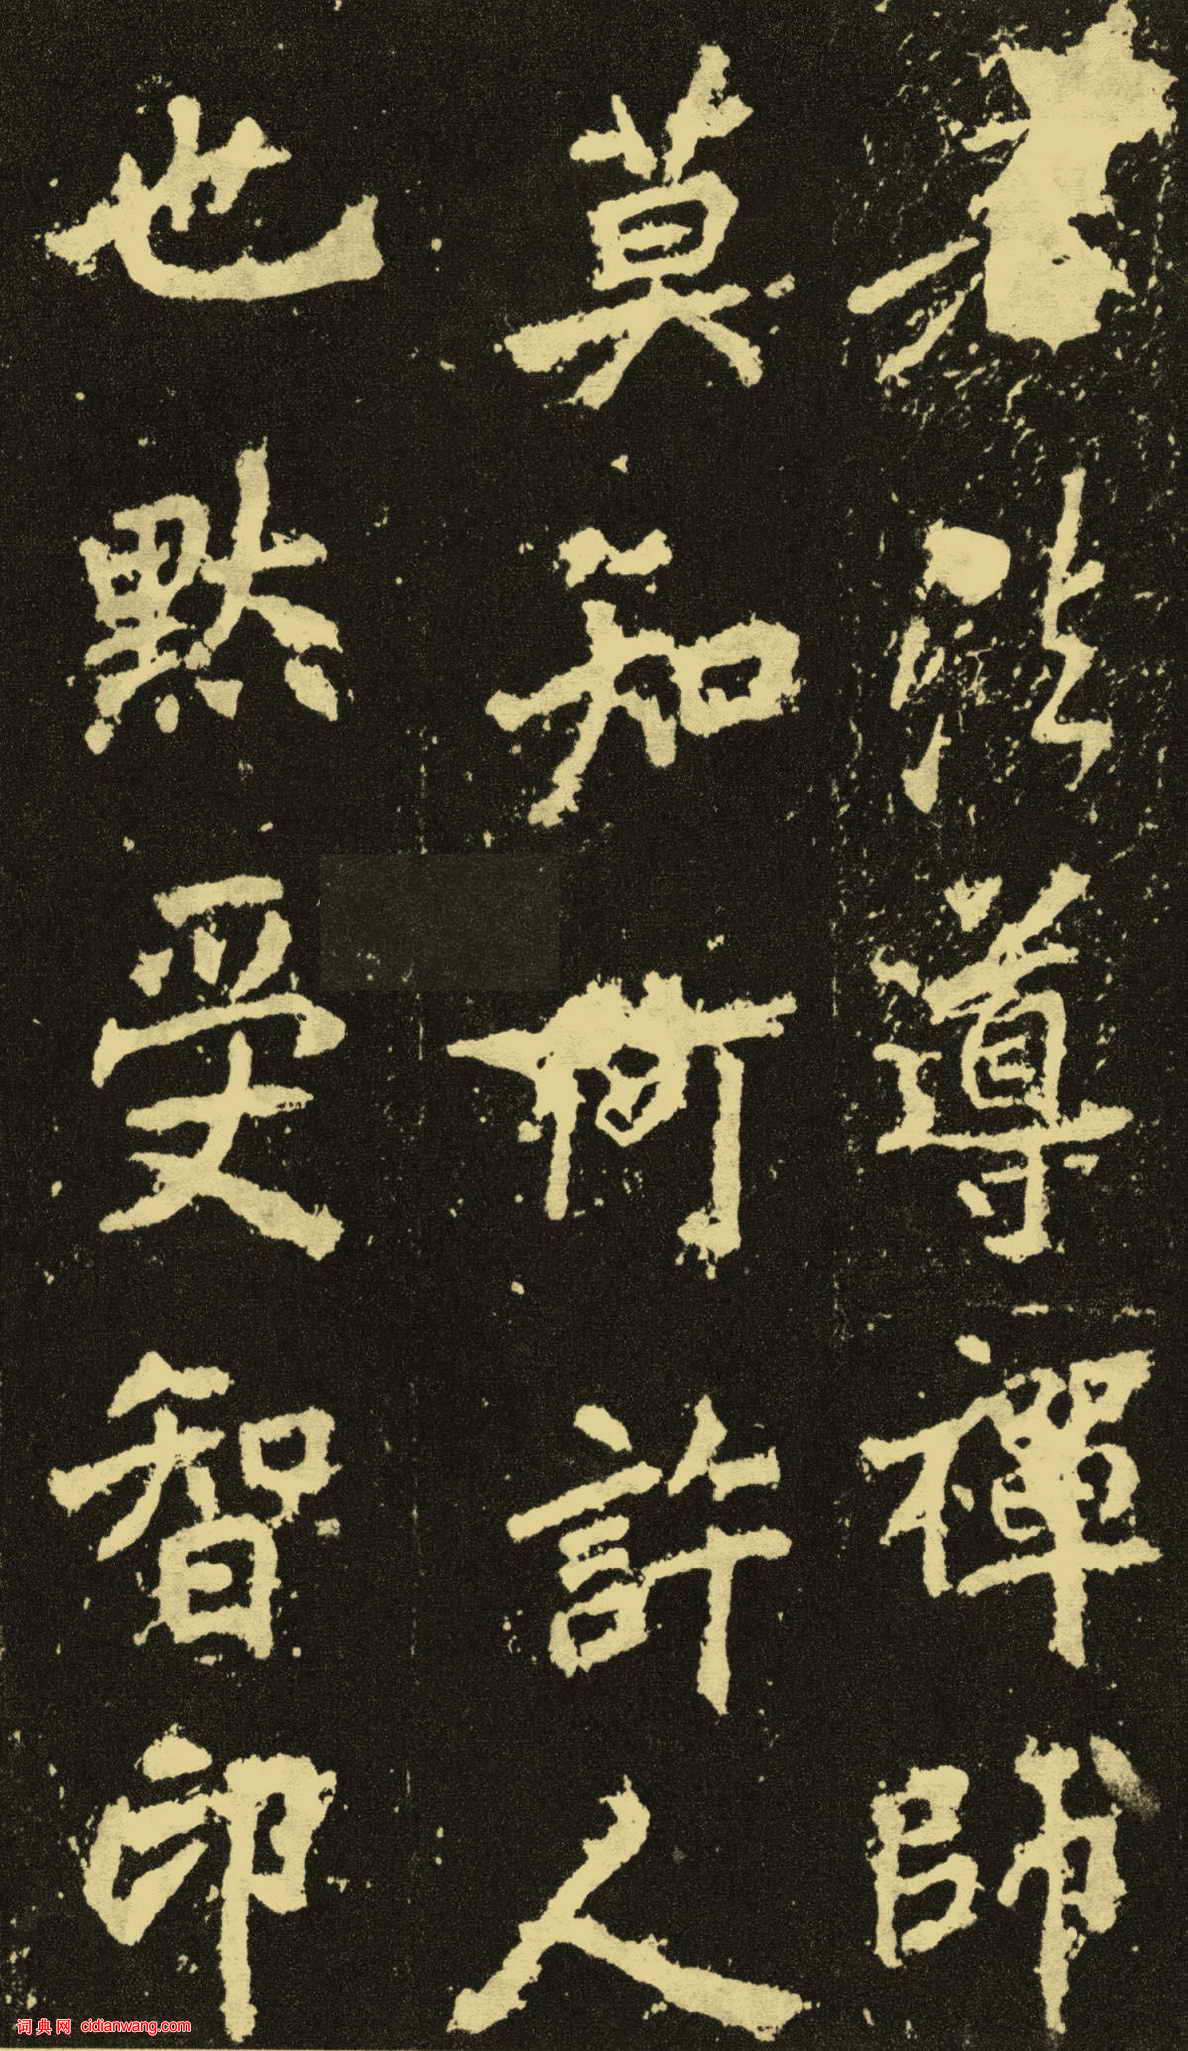 法導禪師
莫知何許人
也默受智印
词典网 cidianwang.com